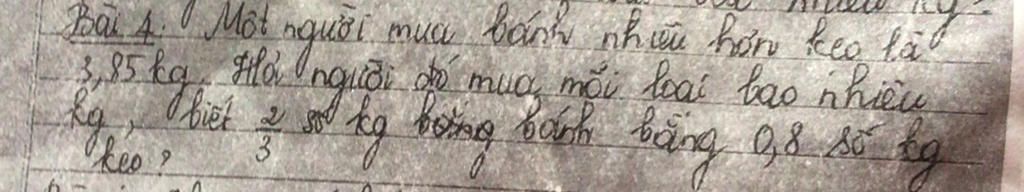 Bài 4: Một người mua bánh nhiều hơn kẹo là
3,85 kg. Hỏi người đó mua mỗi loại bao nhiêu
kg, biết 2/3 số kg bánh bằng 0,8 số kg
kẹo?